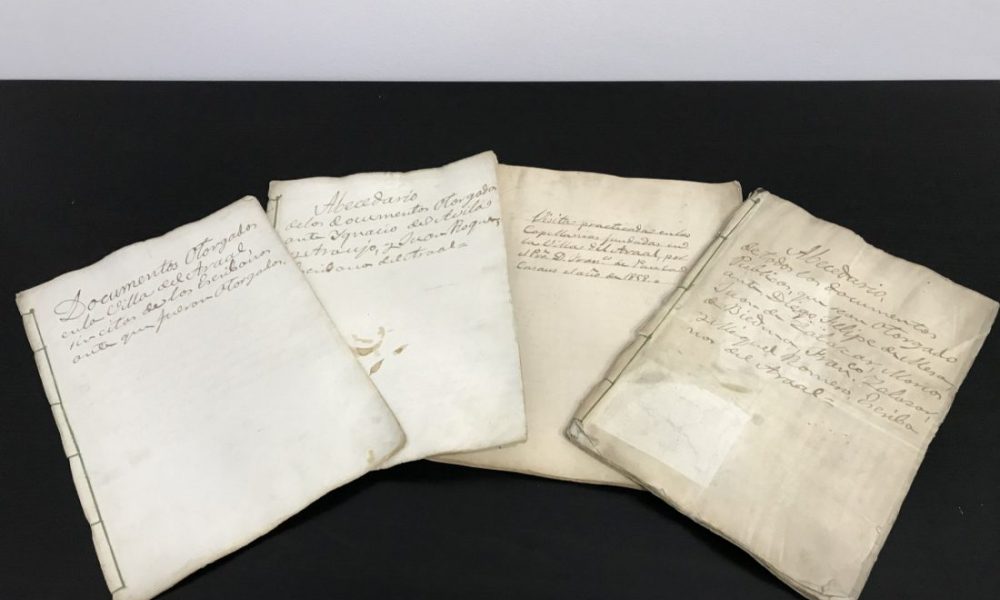 Documentos Otorgados
en la Villa del Araal,
sin citas de los Escribanos
ante que fueron Otorgados
Abecedario
de los documentos Otorgados
ante Ignacio del Avila
y Araujo, y Juan Roque
Escribanos del Araal=
Visitas practicadas en las
Capellanias fundadas en
la Villa del Araal, por
el Pbo. D. Juan
el año de 1858.
Abecedario,
de todos los documentos
Publicos, que fueron Otorgado
ante Diego Felipe de Mesa,
Juan de
de Biedma, Franco.
y Miguel Romero, Escriba
nos del Araal=